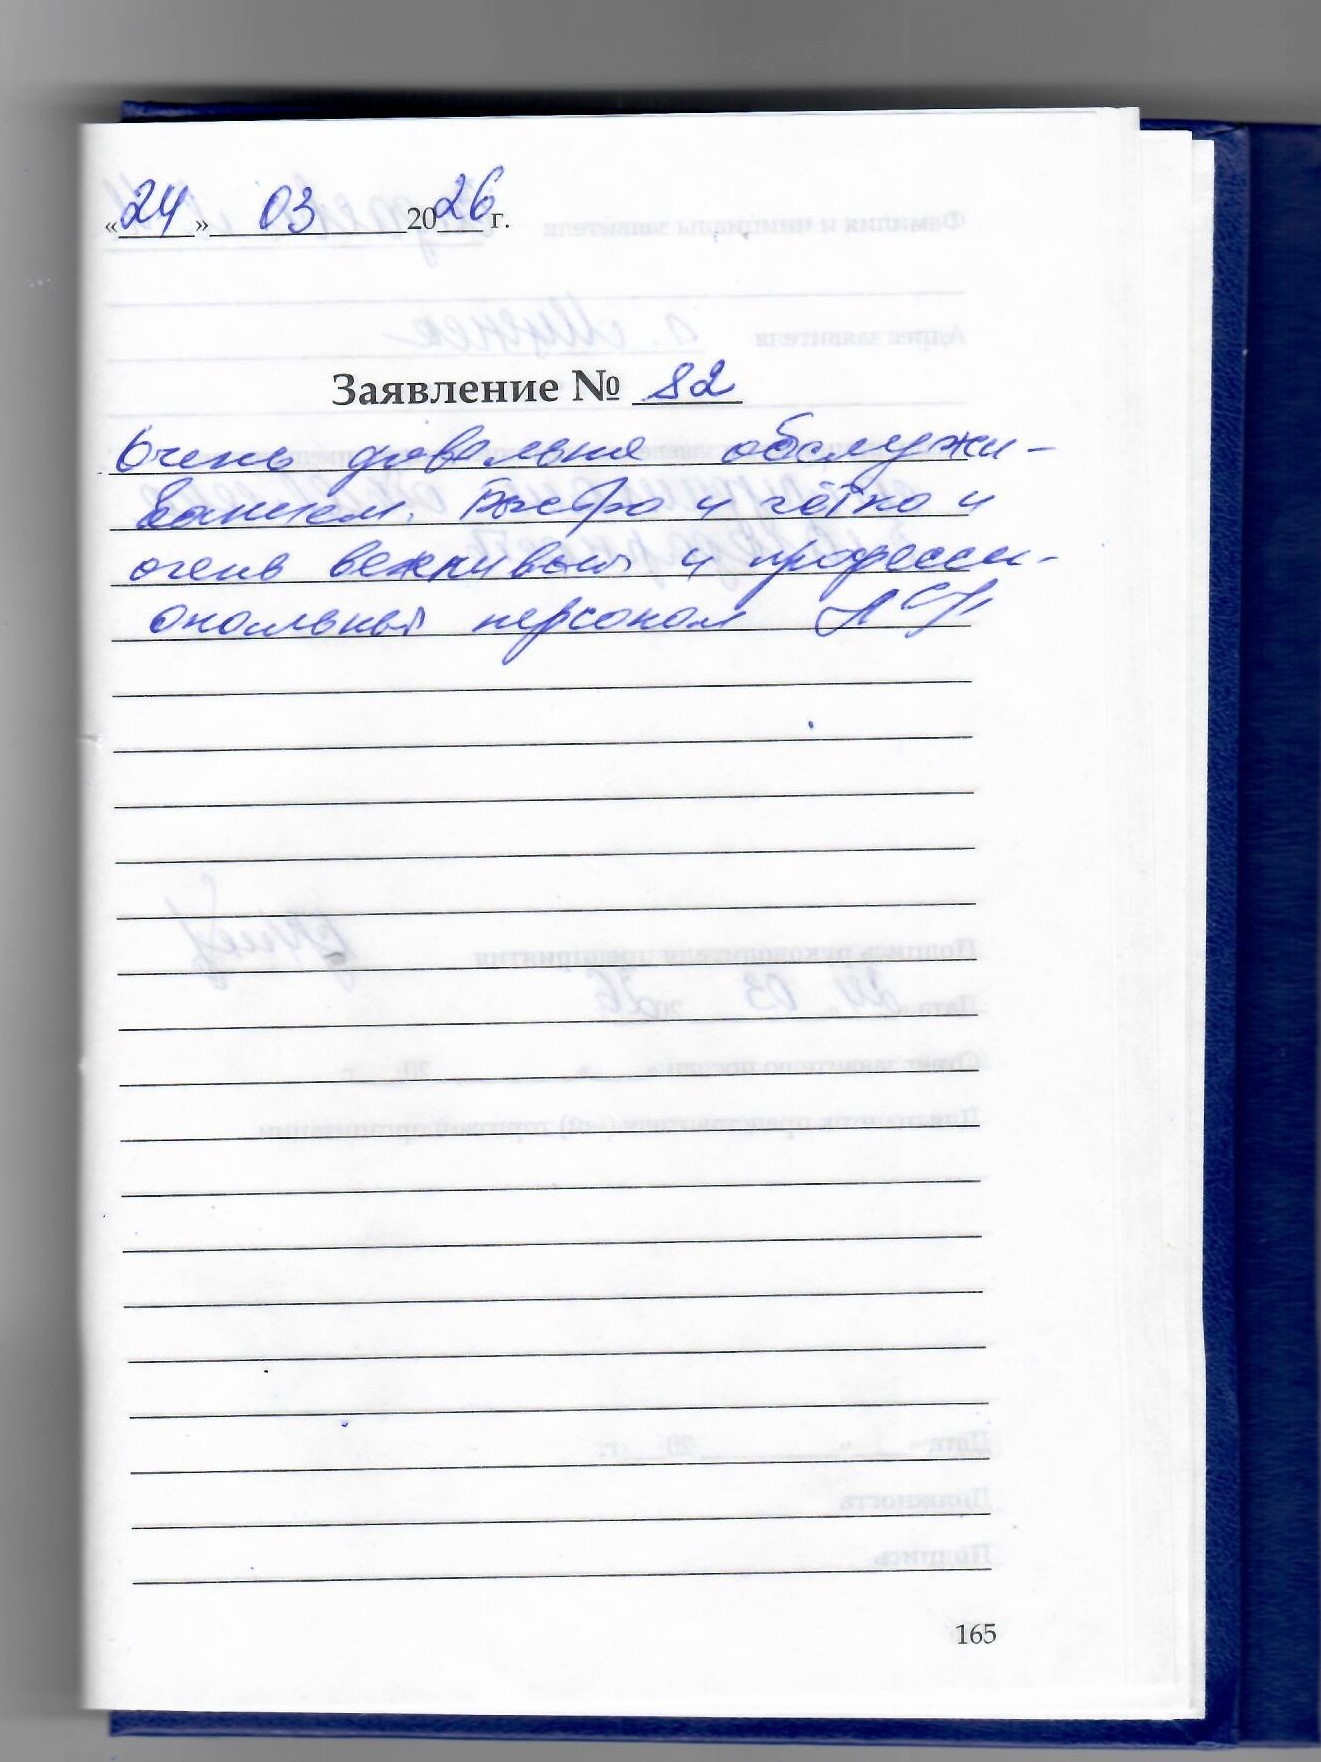 «24» 03 2026 г.
Заявление № 82
Очень довольна обслужи-
ванием. Быстро и чётко и
очень вежливый и професси-
ональный персонал
165